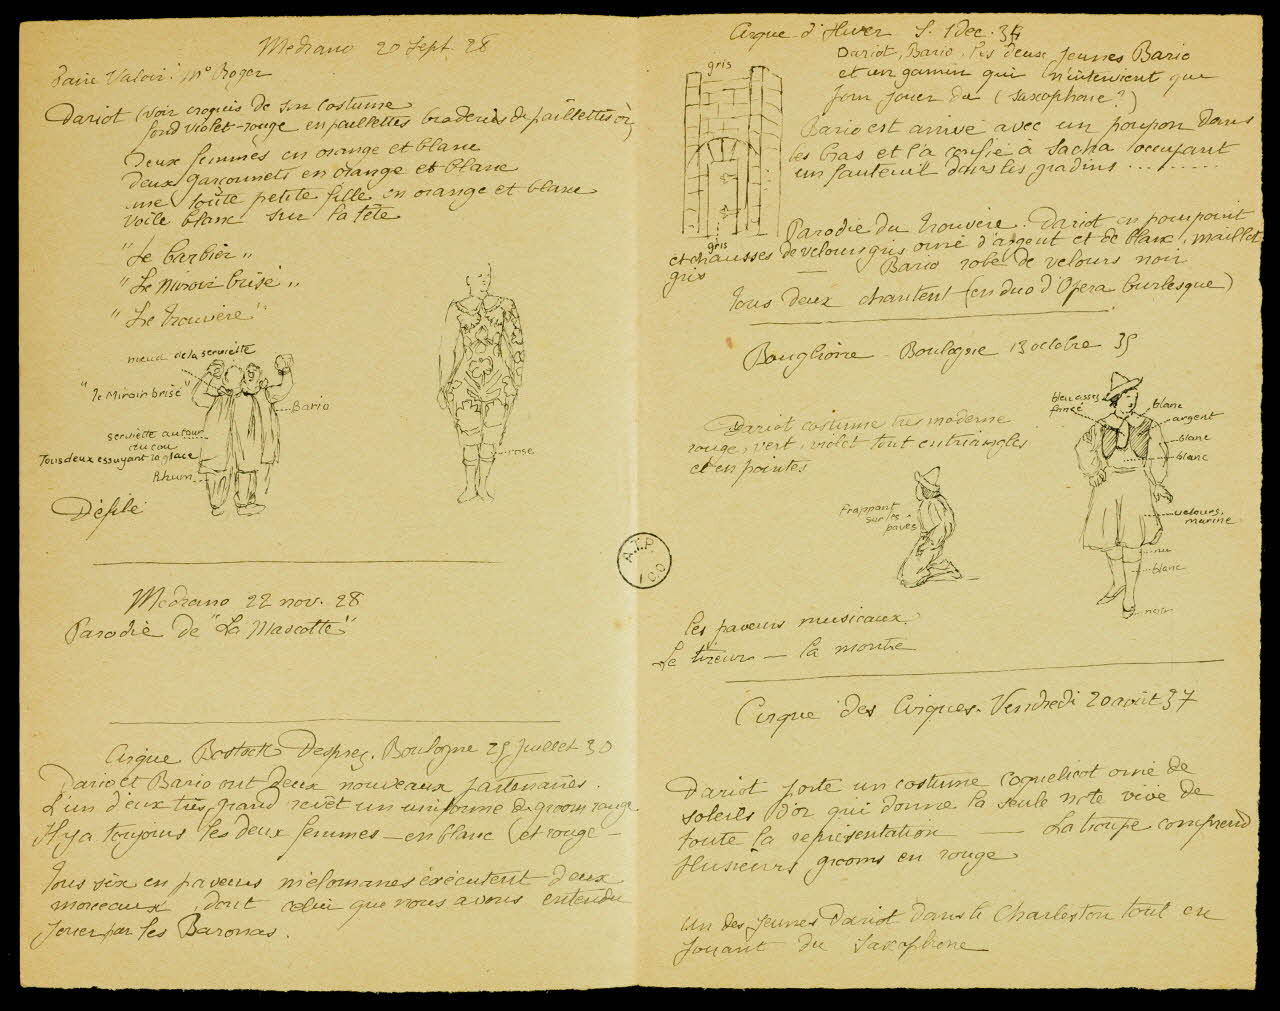 Medrano 20 Sept. 28
faire Valoir : Mr Roger
Dariot (voir croquis de son costume
fond violet-rouge en paillettes broderies de paillettes or)
Deux femmes en orange et blanc
deux garçonnets en orange et blanc
une toute petite fille en orange et blanc
voile blanc sur la tête
"Le barbier"
"Le Miroir brisé"
"Le Trouvère"
nœud de la serviette
"le Miroir brisé"
Bario
serviette autour
du cou
Tous deux essuyant la glace
Rhum
rose
Défilé
Medrano 22 nov. 28
Parodie de "La Mascotte"
Cirque Bostock Desprez. Boulogne 25 juillet 30
Dario et Bario ont deux nouveaux partenaires.
L'un d'eux très grand revêt un uniforme de groom rouge
Il y a toujours les deux femmes - en blanc et rouge -
Tous six en paveurs mélomanes exécutent deux
morceaux, dont celui que nous avons entendu
jouer par les Baronas.
A.T.P.
100
Cirque d'Hiver S. 1 Dec. 34
Dariot, Bario, les deux jeunes Bario
et un gamin qui n'intervient que
pour jouer du (saxophone?)
Bario est arrivé avec un poupon dans
les bras et l'a confié à Sacha occupant
un fauteuil dans les gradins ........
gris
gris
Parodie du Trouvère. Dariot en pourpoint
et chausses de velours gris orné d'argent et de blanc, maillot
gris — Bario robe de velours noir
Tous deux chantent (en duo d'Opera burlesque)
Bouglione - Boulogne 13 octobre 35
Dariot costume très moderne
rouge, vert, violet tout en triangles
et en pointes
bleu assez
foncé
blanc
argent
blanc
blanc
velours
marine
nu
blanc
noir
frappant
sur les
pavés
les paveurs musicaux.
Le tireur — la montre
Cirque des Cirques. Vendredi 20 août 37
Dariot porte un costume coquelicot orné de
soleils d'or qui donne la seule note vive de
toute la représentation — La troupe comprend
plusieurs grooms en rouge
Un des jeunes Dariot danse le Charleston tout en
jouant du saxophone